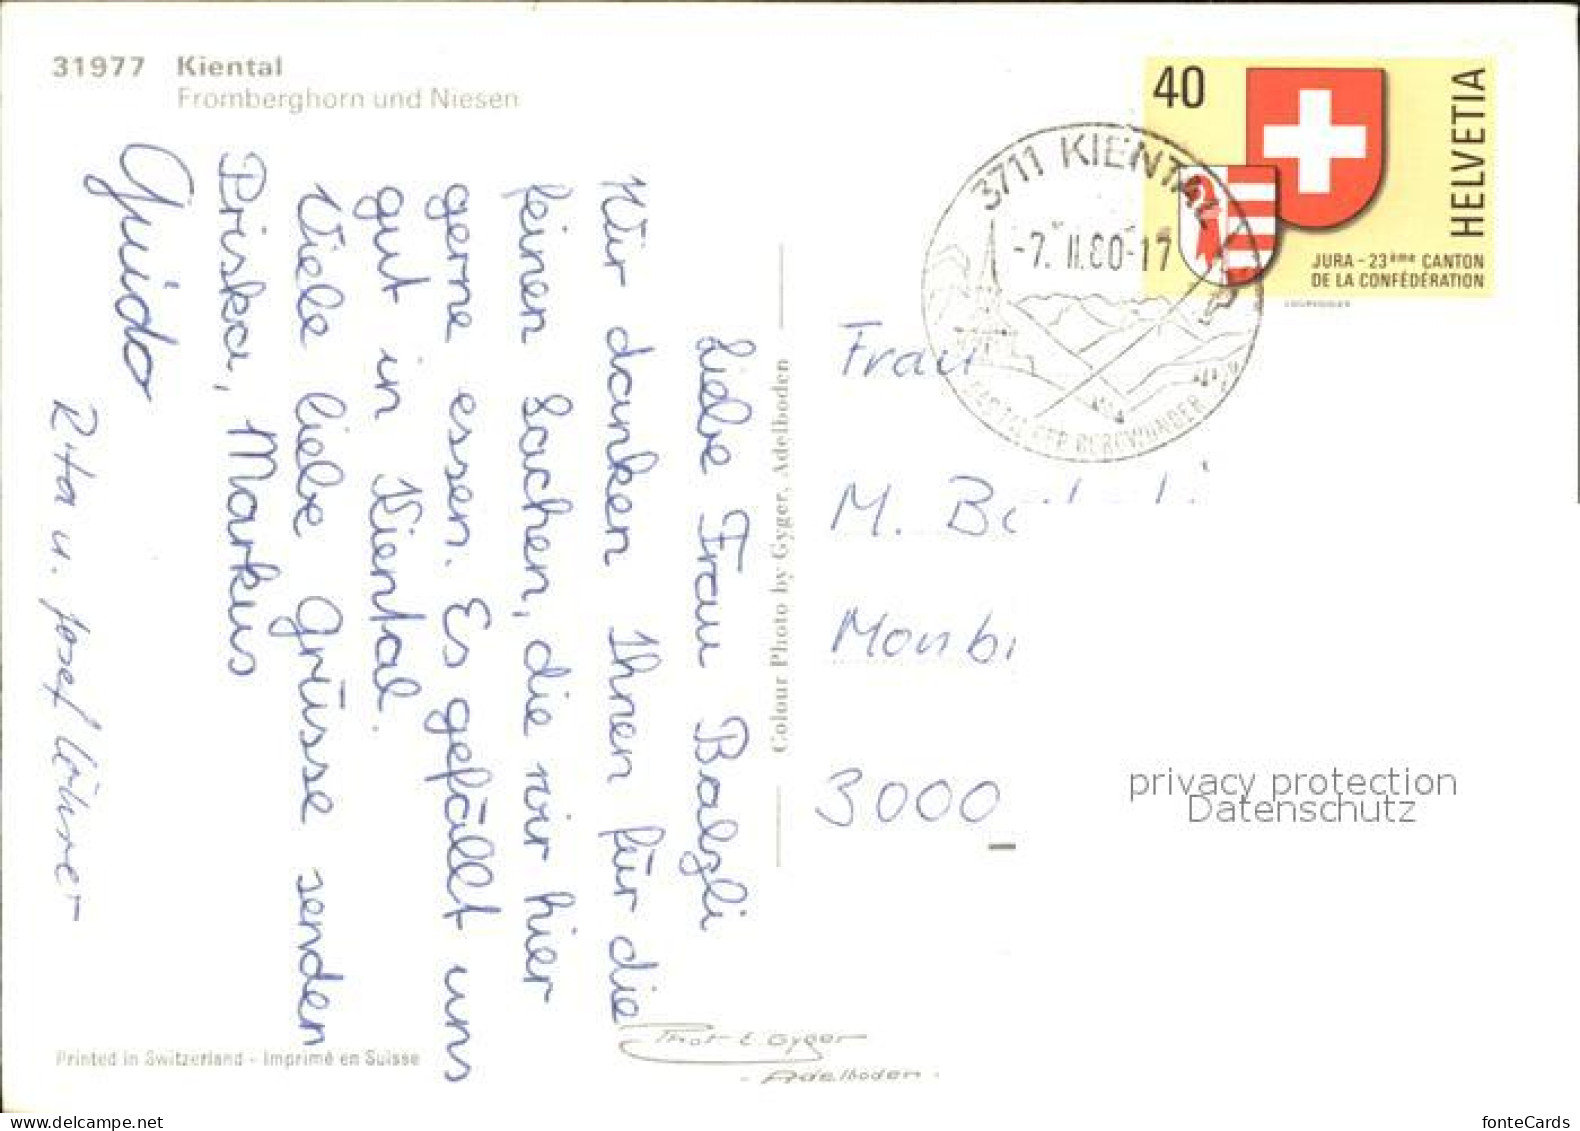 31977 Kiental
Fromberghorn und Niesen
Liebe Frau Balzli
Wir danken Ihnen für die
feinen Sachen, die wir hier
gerne essen. Es gefällt uns
gut in Kiental.
Viele liebe Grüsse senden
Priska, Markus
Guido
Rita u. Josef
Printed in Switzerland - Imprimé en Suisse
Colour Photo by Gyger, Adelboden
Phot E. Gyger
- Adelboden -
40
HELVETIA
JURA - 23ème CANTON
DE LA CONFÉDÉRATION
3711 KIENTAL
-7. II. 80-17
Frau
M.
3000
privacy protection
Datenschutz
www.delcampe.net
fonteCards